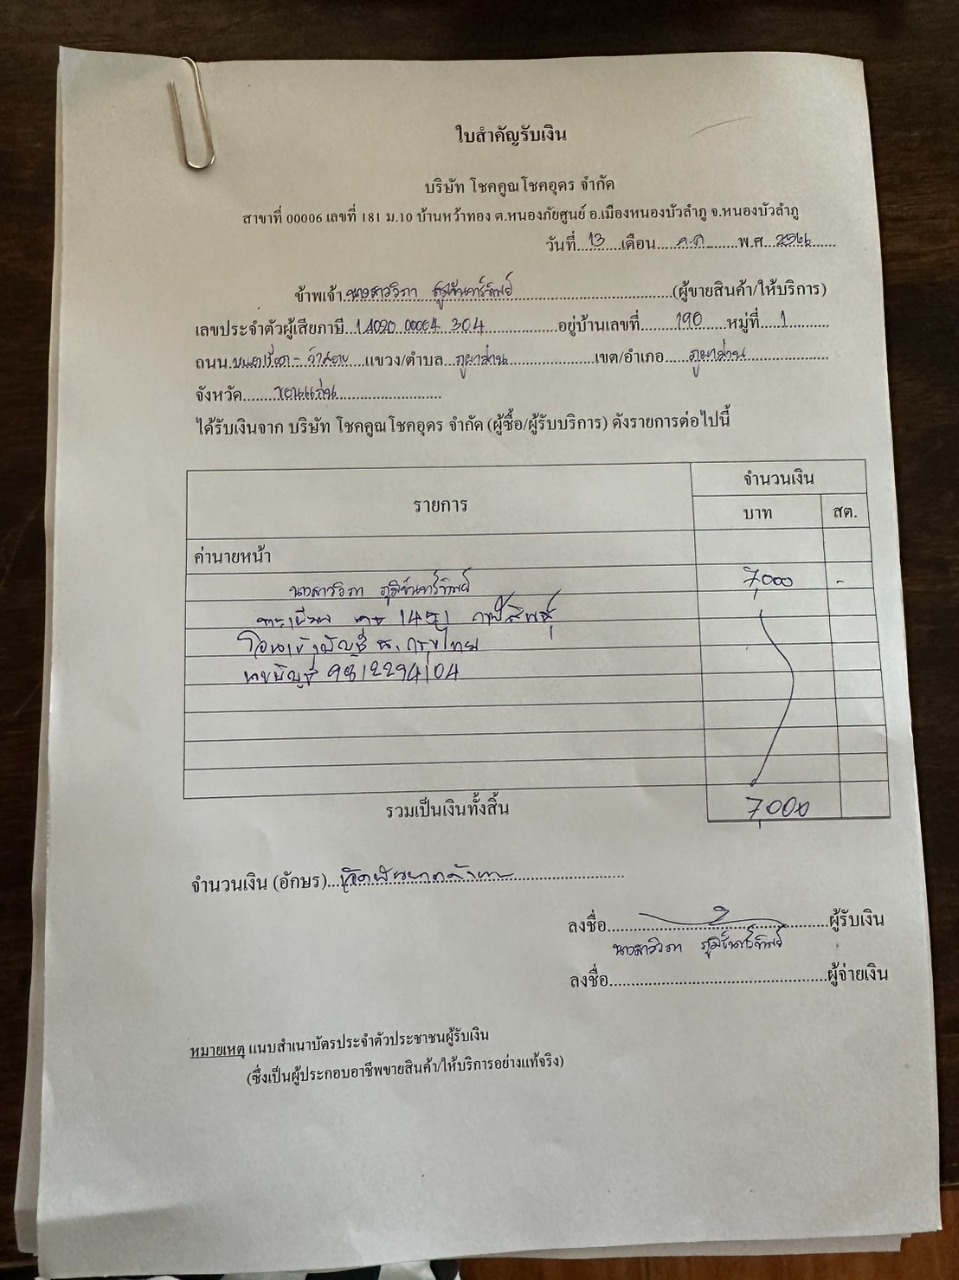 ใบสำคัญรับเงิน
บริษัท โชคคูณโชคอุดร จำกัด
สาขาที่ 00006 เลขที่ 181 ม.10 บ้านหว้าทอง ต.หนองภัยศูนย์ อ.เมืองหนองบัวลำภู จ.หนองบัวลำภู
วันที่ 13 เดือน ค.ค พ.ศ 2566
ข้าพเจ้า นางสาววิภา ภูมิจันทร์ทิพย์ (ผู้ขายสินค้า/ให้บริการ)
เลขประจำตัวผู้เสียภาษี 1 4020 00064 304 อยู่บ้านเลขที่ 190 หมู่ที่ 1
ถนน แขวง/ตำบล ภูผาม่าน เขต/อำเภอ ภูผาม่าน
จังหวัด ขอนแก่น
ได้รับเงินจาก บริษัท โชคคูณโชคอุดร จำกัด (ผู้ซื้อ/ผู้รับบริการ) ดังรายการต่อไปนี้
รายการ จำนวนเงิน
บาท สต.
ค่านายหน้า
นางสาววิภา ภูมิจันทร์ทิพย์ 7,000 -
ทะเบียน 1451 กาฬสินธุ์
โอนเข้าบัญชี ธ.กรุงไทย
เลขบัญชี 9812294104
รวมเป็นเงินทั้งสิ้น 7,000
จำนวนเงิน (อักษร) เจ็ดพันบาทถ้วน
ลงชื่อ ผู้รับเงิน
นางสาววิภา ภูมิจันทร์ทิพย์
ลงชื่อ ผู้จ่ายเงิน
หมายเหตุ แนบสำเนาบัตรประจำตัวประชาชนผู้รับเงิน
(ซึ่งเป็นผู้ประกอบอาชีพขายสินค้า/ให้บริการอย่างแท้จริง)